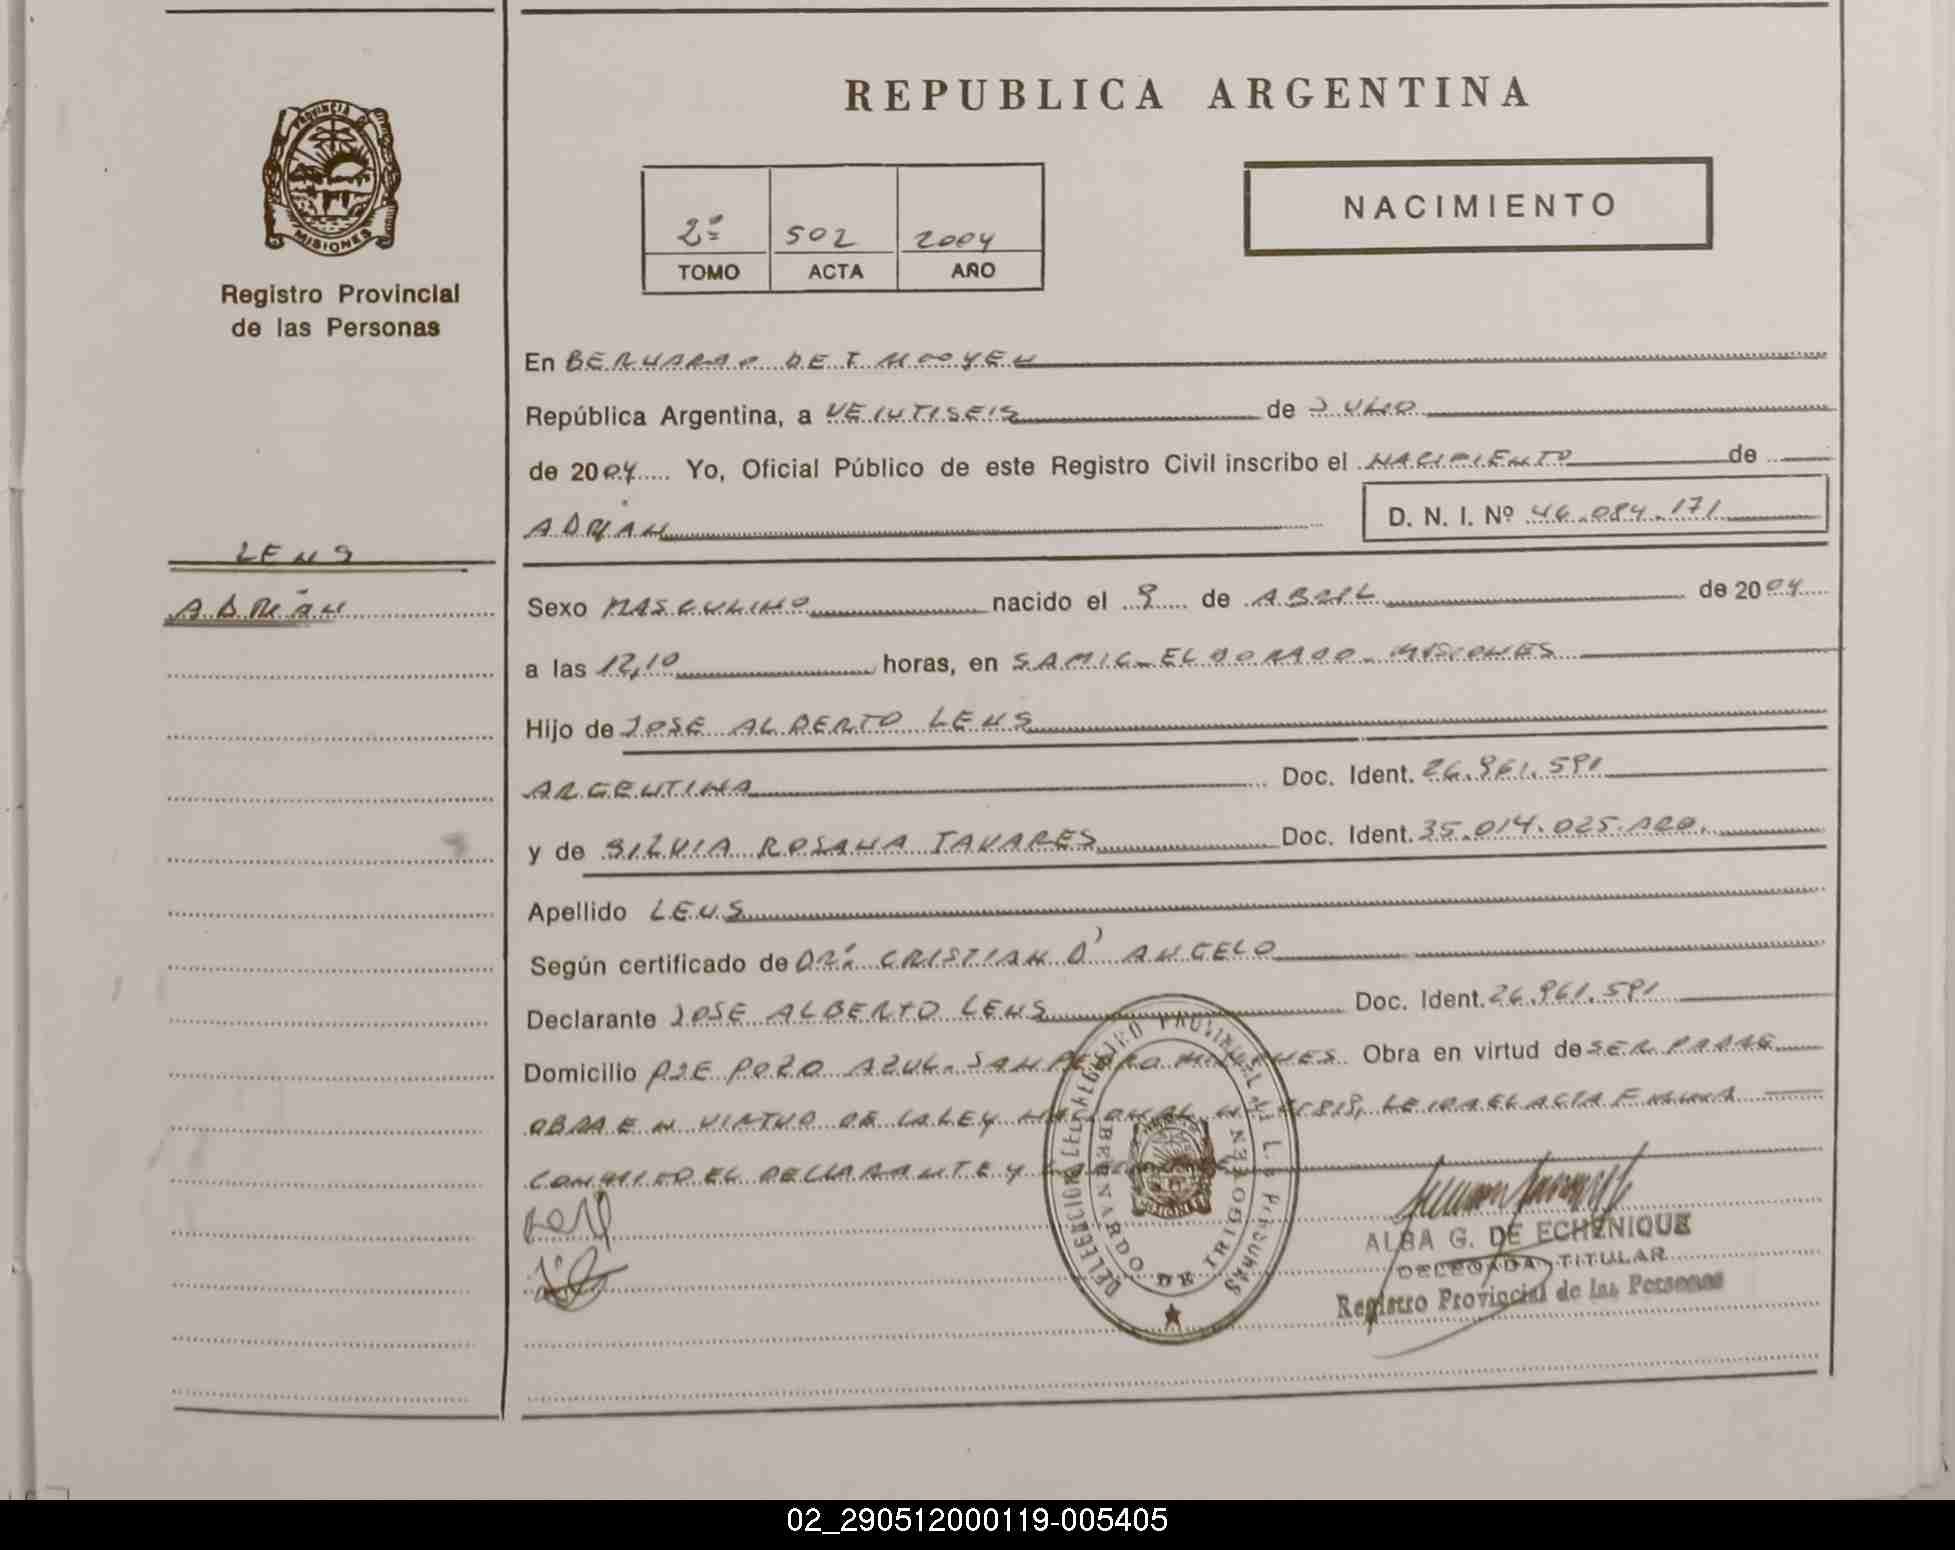 REPUBLICA ARGENTINA
PROVINCIA DE
MISIONES
Registro Provincial
de las Personas
2º 502 2004
TOMO ACTA AÑO
NACIMIENTO
En BERNARDO DE IRIGOYEN
República Argentina, a VEINTISEIS de JULIO
de 2004 Yo, Oficial Público de este Registro Civil inscribo el NACIMIENTO de
ADRIÁN D. N. I. Nº 46.084.171
LENS
ADRIÁN
Sexo MASCULINO nacido el 9 de ABRIL de 2004
a las 12,10 horas, en SAMIC-ELDORADO-MISIONES
Hijo de JOSE ALBERTO LENS
ARGENTINA Doc. Ident. 26.961.591
y de SILVIA ROSANA TAVARES Doc. Ident. 35.014.025.ARG.
Apellido LENS
Según certificado de DR. CRISTIAN D' ANGELO
Declarante JOSE ALBERTO LENS Doc. Ident. 26.961.591
Domicilio PJE POZO AZUL-SAN PEDRO MISIONES Obra en virtud de SER PADRE
OBRA EN VIRTUD DE LA LEY NACIONAL LEIDA EL ACTA FIRMA
CONMIGO EL DECLARANTE Y
DELEGACION DEL REGISTRO PROVINCIAL DE LAS PERSONAS
BERNARDO DE IRIGOYEN
ALBA G. DE ECHENIQUE
DELEGADA TITULAR
Registro Provincial de las Personas
02_290512000119-005405